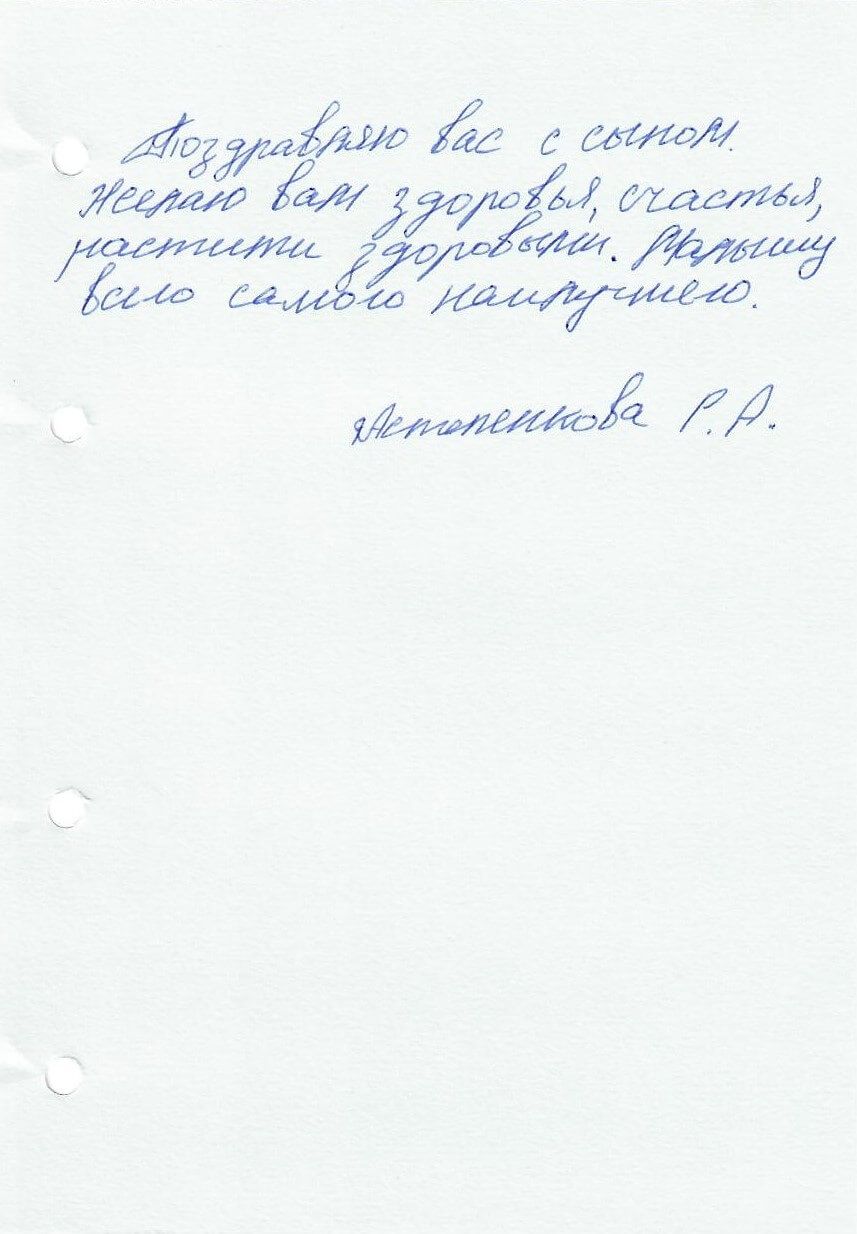 Поздравляю вас с сыном.
Желаю вам здоровья, счастья,
расти здоровыми. Малышу
всего самого наилучшего.
Астапенкова Р. А.